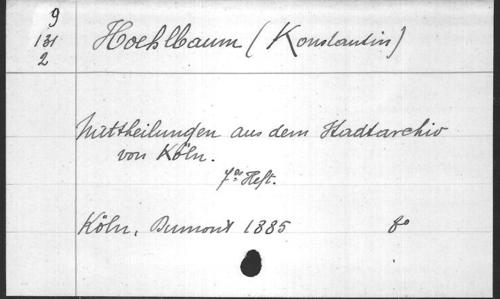 9
131
2
Hoehlbaum (Konstantin)
Mittheilungen aus dem Stadtarchiv
von Köln.
7es Heft.
Köln, Dumont 1885 8o